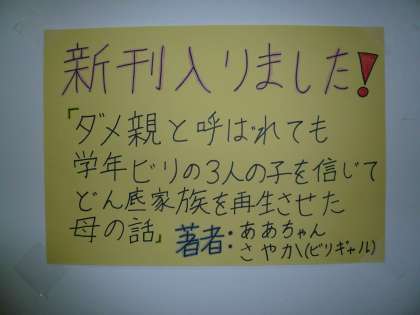 新刊入りました!
「ダメ親と呼ばれても
学年ビリの3人の子を信じて
どん底家族を再生させた
母の話」
著者:ああちゃん
さやか(ビリギャル)